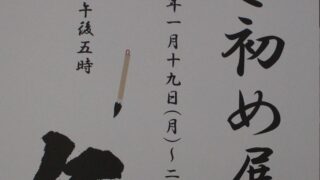 初め展
年一月十九日(月)〜二
午後五時